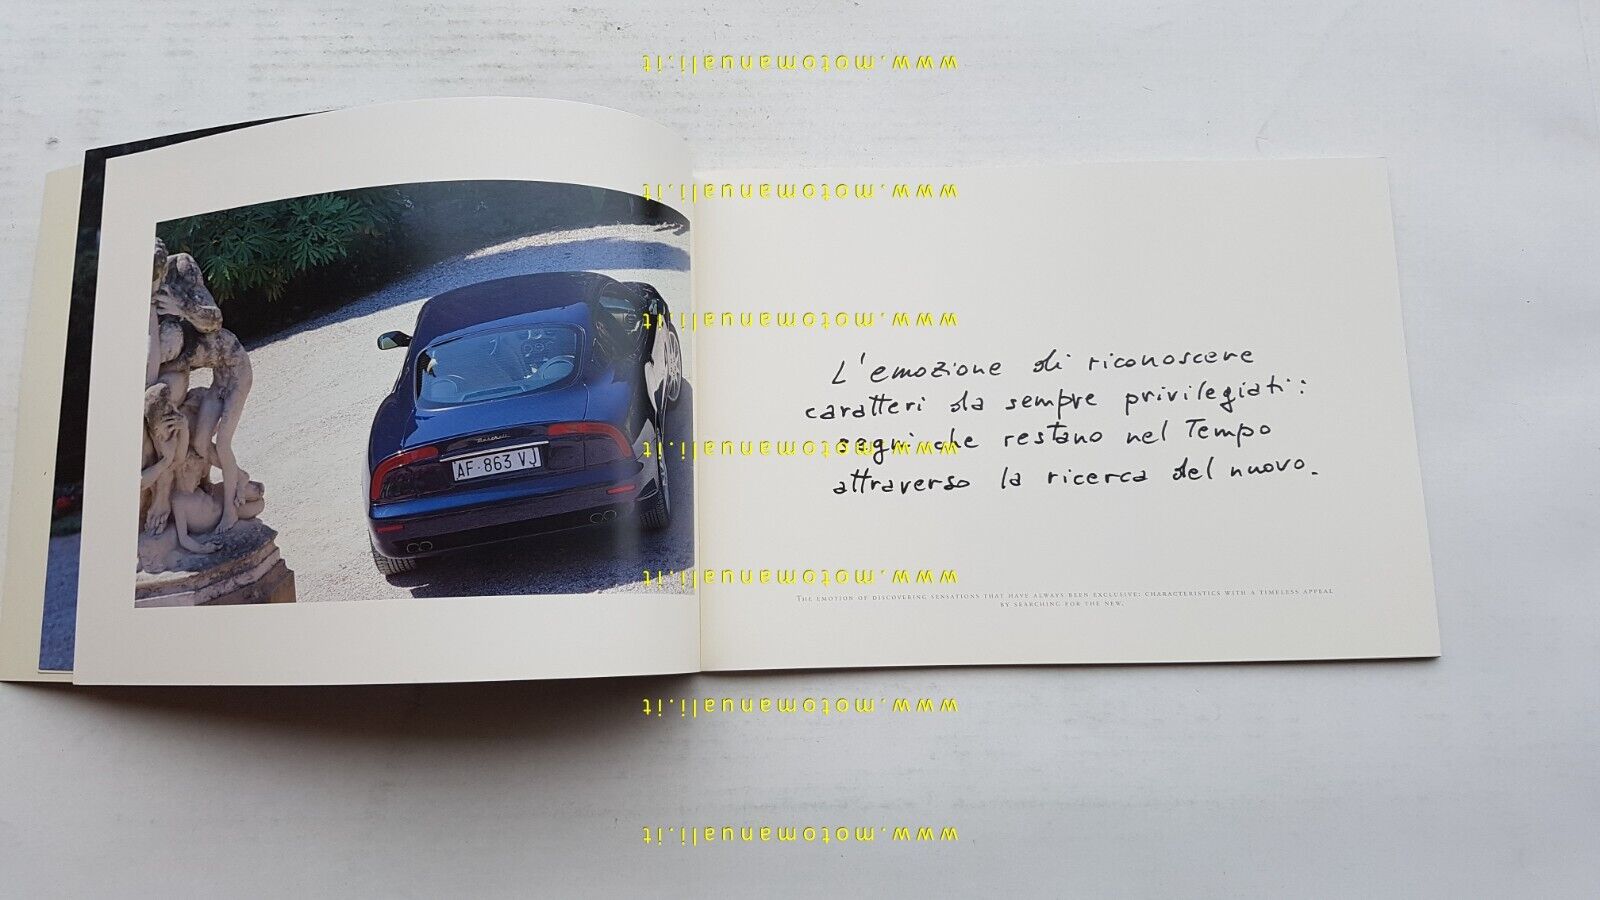 www.motomanuali.it
www.motomanuali.it
www.motomanuali.it
Maserati
AF·863 VJ
L'emozione di riconoscere
caratteri da sempre privilegiati:
segni che restano nel Tempo
attraverso la ricerca del nuovo.
www.motomanuali.it
www.motomanuali.it
THE EMOTION OF DISCOVERING SENSATIONS THAT HAVE ALWAYS BEEN EXCLUSIVE: CHARACTERISTICS WITH A TIMELESS APPEAL
BY SEARCHING FOR THE NEW.
www.motomanuali.it
www.motomanuali.it